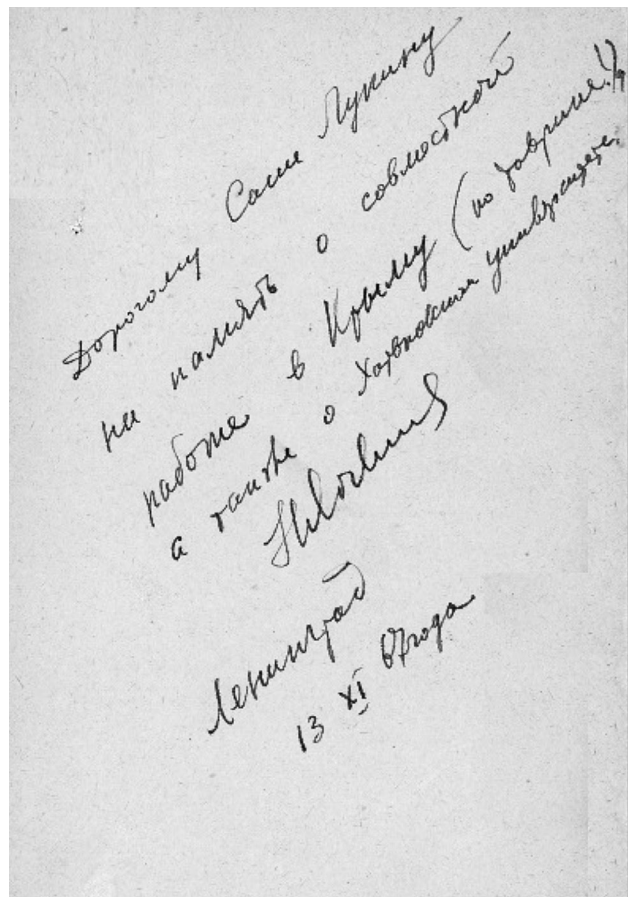 Дорогому Саше Лукину
на память о совместной
работе в Крыму (по
а также о Харьковском университете
Ленинград
13 XI 67 года